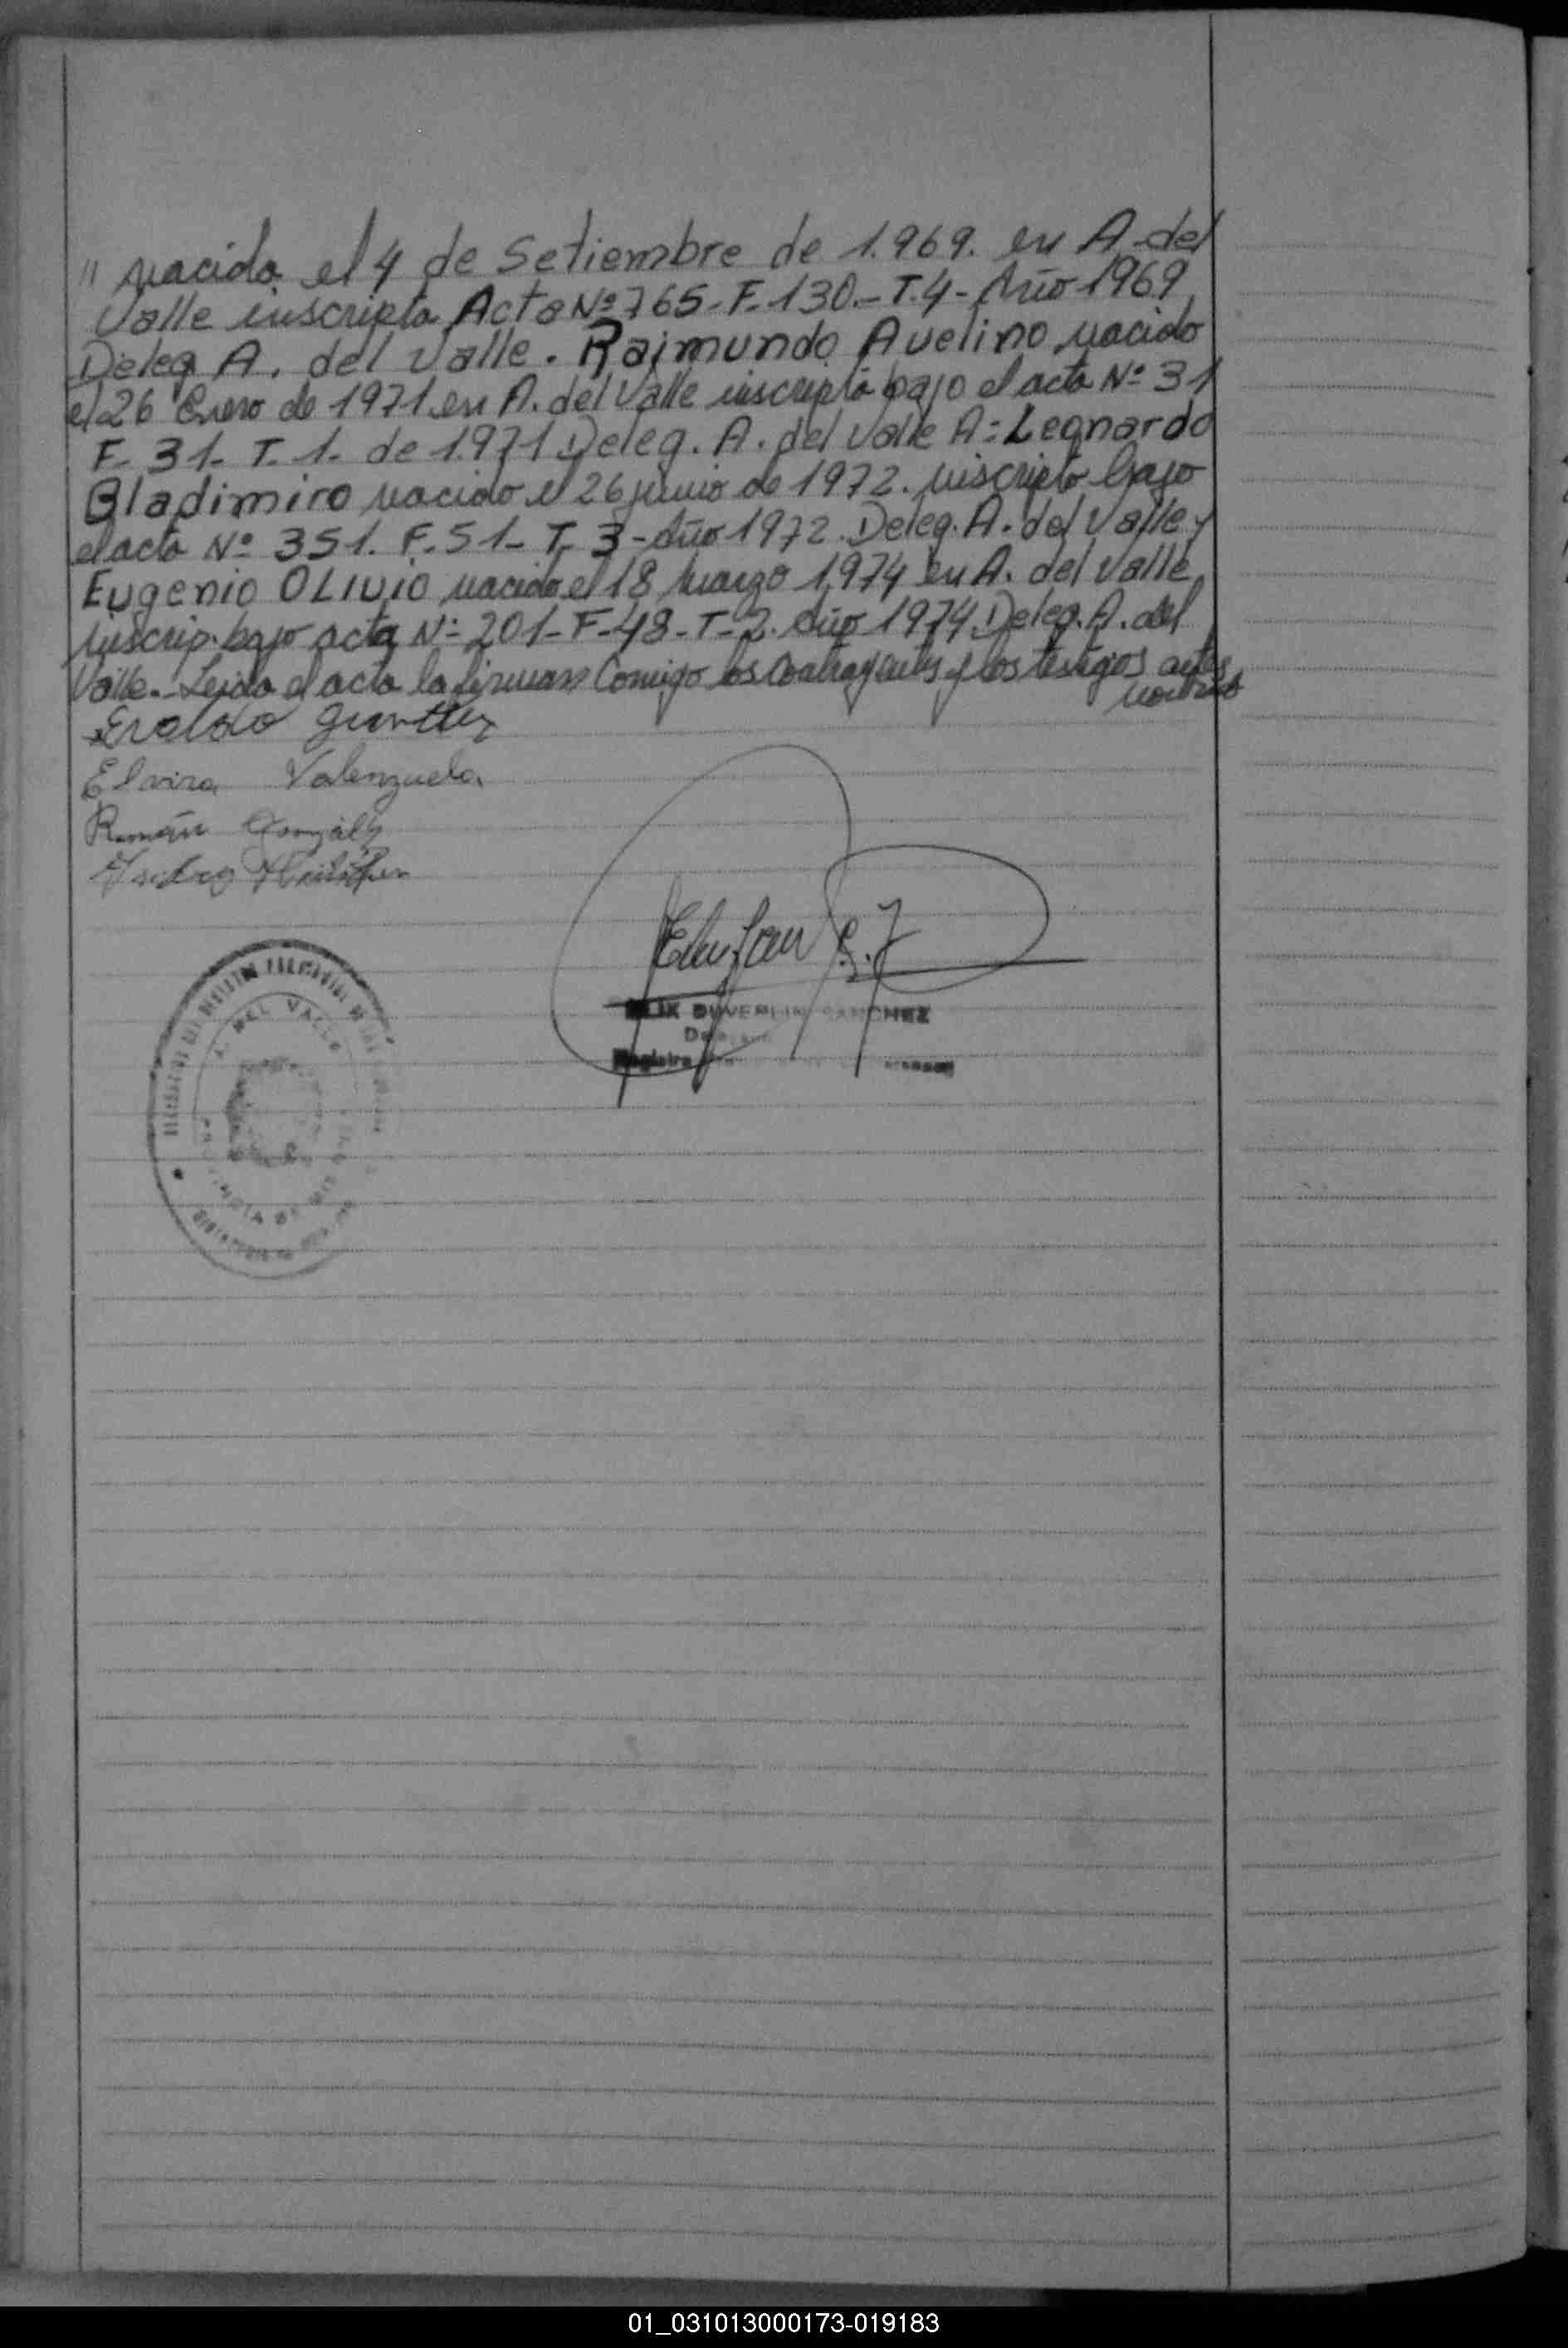 " nacida el 4 de Setiembre de 1.969. en A. del
Valle inscripta Acta Nº 765- F. 130.- T. 4- Año 1969
Deleg A. del Valle. Raimundo Avelino nacido
el 26 Enero de 1971 en A. del Valle inscripto bajo el acta Nº 31
F- 31- T. 1- de 1971 Deleg. A. del Valle A: Leonardo
Bladimiro nacido el 26 junio de 1972. inscripto bajo
el acta Nº 351. F. 51- T. 3- Año 1972. Deleg. A. del Valle y
Eugenio OLIVIO nacido el 18 marzo 1974 en A. del Valle,
inscrip. bajo acta Nº 201- F-48- T- 2. Año 1974 Deleg. A. del
Valle.- Leida el acta la firman Comigo los Contrayentes y los testigos antes
nombrad
Elvira Valenzuela
Román González
A. DEL VALLE
SANCHEZ
Registro
01_031013000173-019183